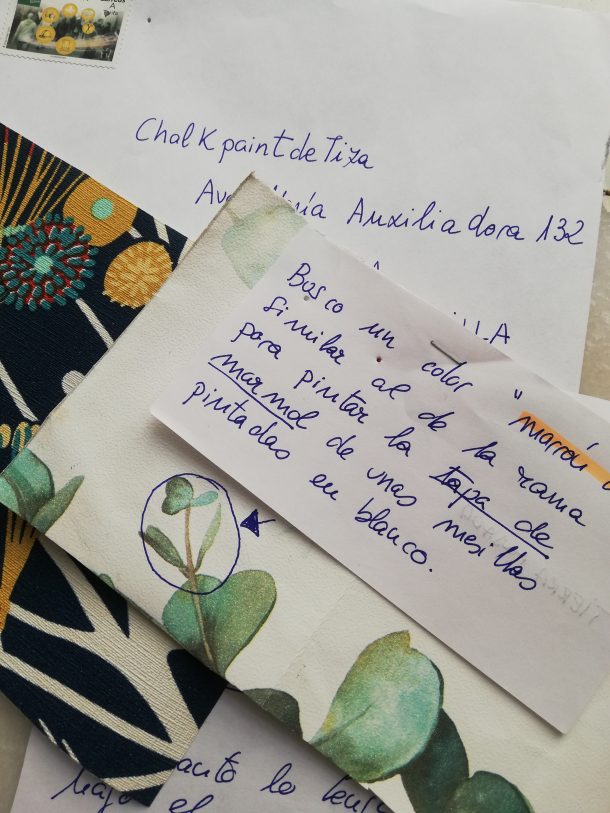 Chalk paint de Tiza
María Auxiliadora 132
Busco un color "marrón
similar al de la rama
para pintar la tapa de
marmol de unas mesillas
pintadas en blanco.
lo
el